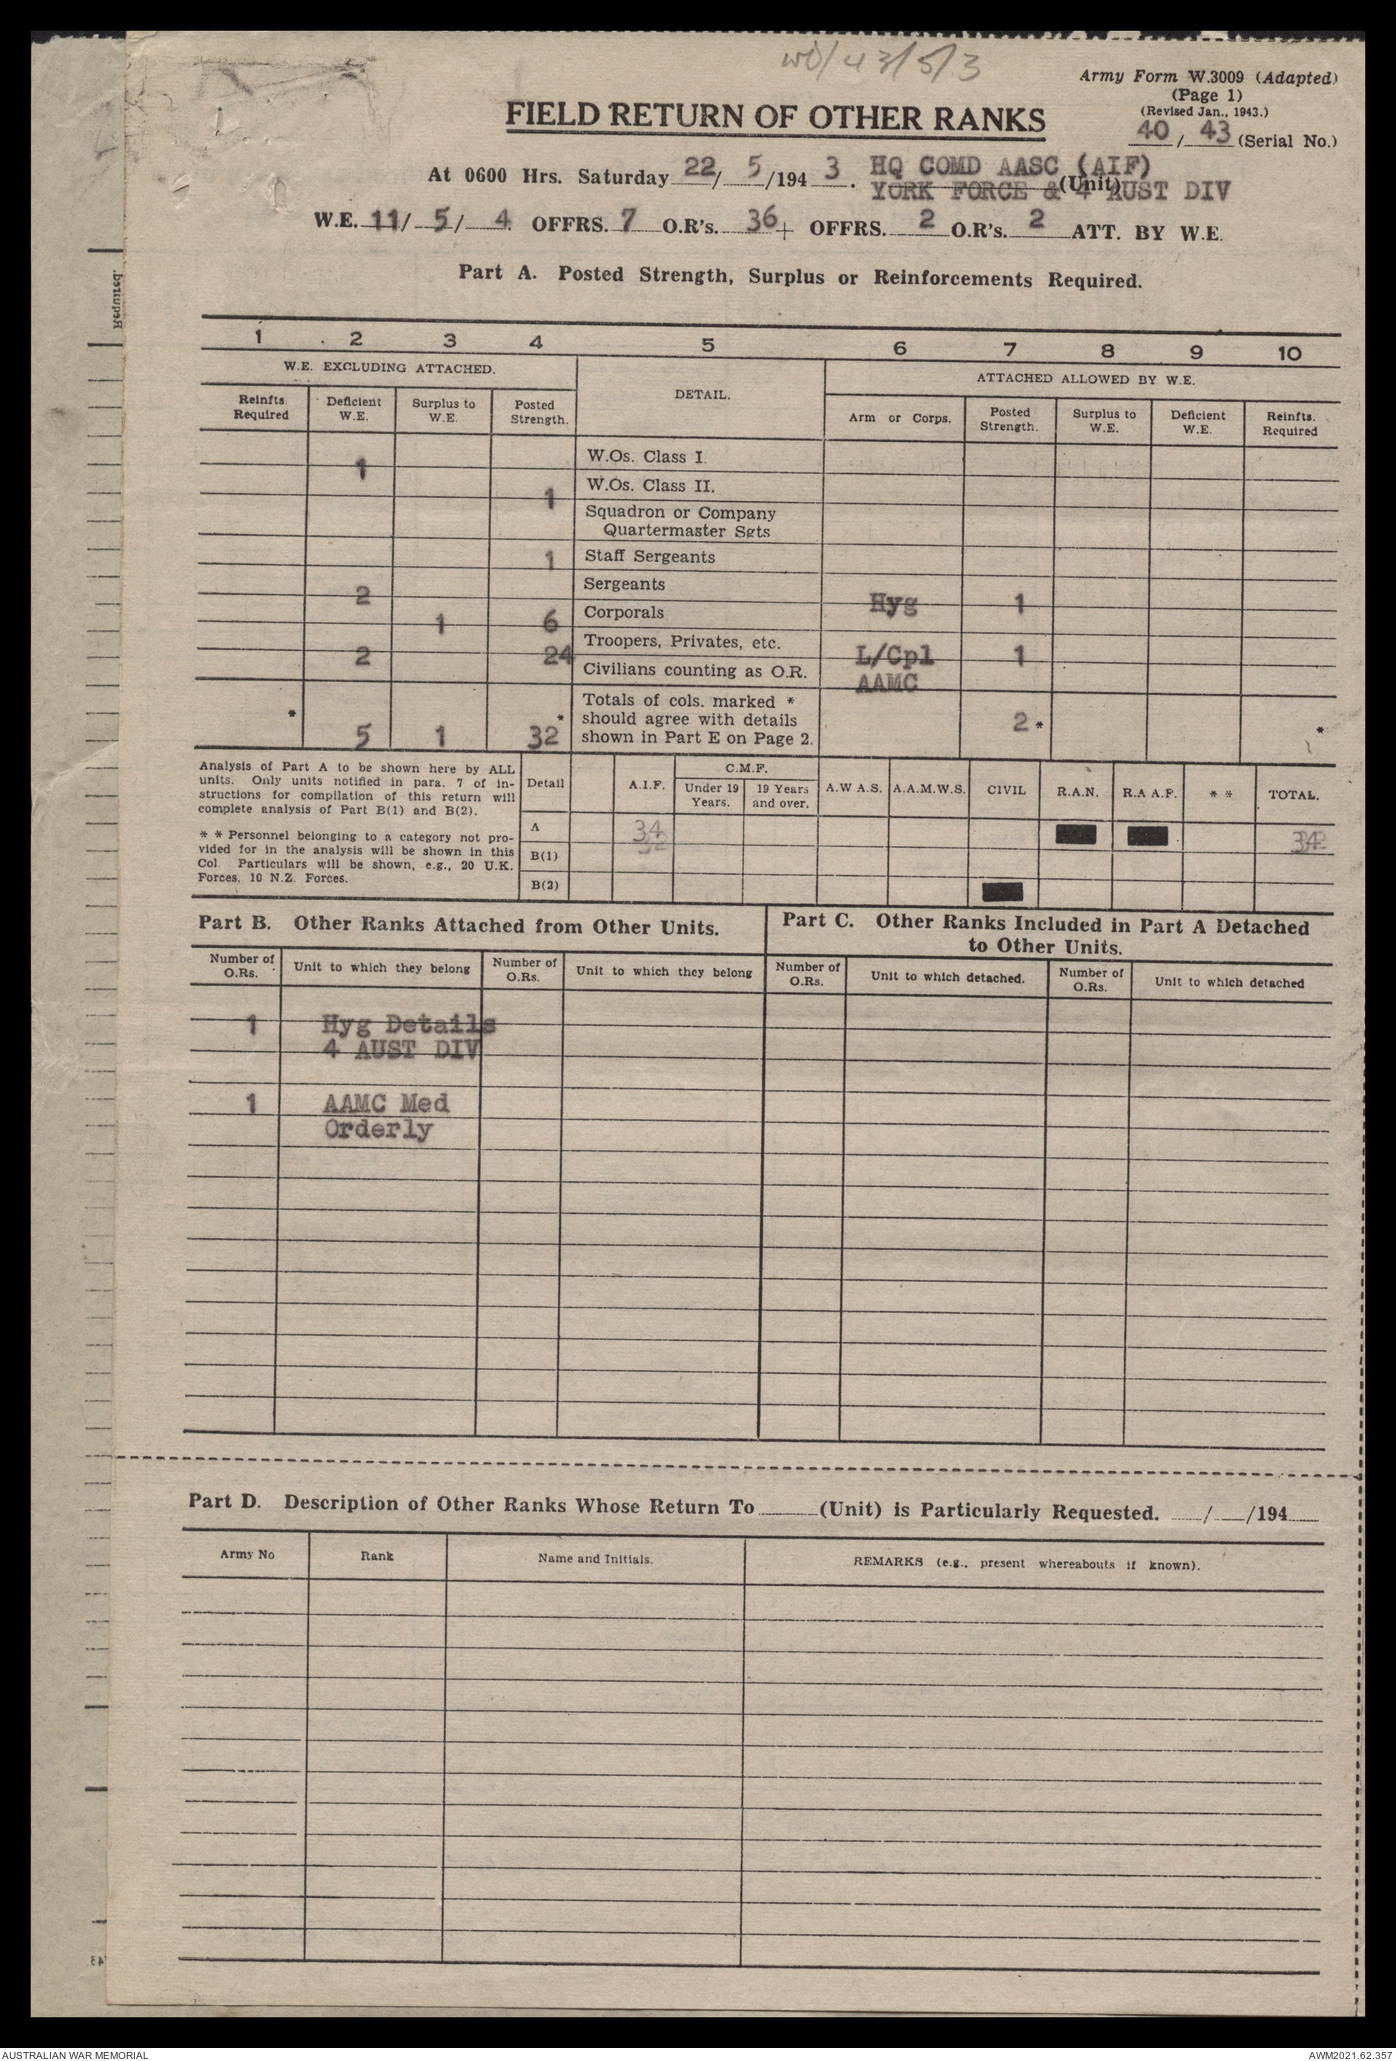 WD/43/5/3
Army Form W.3009 (Adapted)
(Page 1)
(Revised Jan., 1943.)
40 / 43 (Serial No.)
FIELD RETURN OF OTHER RANKS
At 0600 Hrs. Saturday 22/ 5 /194 3. HQ COMD AASC (AIF)
YORK FORCE & 4 AUST DIV (Unit)
W.E. 11/ 5/ 4 OFFRS. 7 O.R's. 36 + OFFRS. 2 O.R's. 2 ATT. BY W.E.
Part A. Posted Strength, Surplus or Reinforcements Required.
1 2 3 4 5 6 7 8 9 10
W.E. EXCLUDING ATTACHED. DETAIL. ATTACHED ALLOWED BY W.E.
Reinfts. Required Deficient W.E. Surplus to W.E. Posted Strength. Arm or Corps. Posted Strength. Surplus to W.E. Deficient W.E. Reinfts. Required
1 W.Os. Class I.
1 W.Os. Class II.
Squadron or Company
Quartermaster Sgts
1 Staff Sergeants
2 Sergeants Hyg 1
1 6 Corporals
2 24 Troopers, Privates, etc. L/Cpl 1
Civilians counting as O.R. AAMC
Totals of cols. marked *
* * should agree with details 2 * *
5 1 32 shown in Part E on Page 2.
Analysis of Part A to be shown here by ALL
units. Only units notified in para. 7 of in-
structions for compilation of this return will
complete analysis of Part B(1) and B(2).
* * Personnel belonging to a category not pro-
vided for in the analysis will be shown in this
Col. Particulars will be shown, e.g., 20 U.K.
Forces, 10 N.Z. Forces.
Detail A.I.F. C.M.F. Under 19 Years. 19 Years and over. A.W A.S. A.A.M.W.S. CIVIL R.A.N. R.A A.F. * * TOTAL.
A 34 34
B(1)
B(2)
Part B. Other Ranks Attached from Other Units.
Part C. Other Ranks Included in Part A Detached
to Other Units.
Number of O.Rs. Unit to which they belong Number of O.Rs. Unit to which they belong Number of O.Rs. Unit to which detached. Number of O.Rs. Unit to which detached
1 Hyg Details
4 AUST DIV
1 AAMC Med
Orderly
Part D. Description of Other Ranks Whose Return To (Unit) is Particularly Requested. / /194
Army No Rank Name and Initials. REMARKS (e.g., present whereabouts if known).
AUSTRALIAN WAR MEMORIAL
AWM2021.62.357